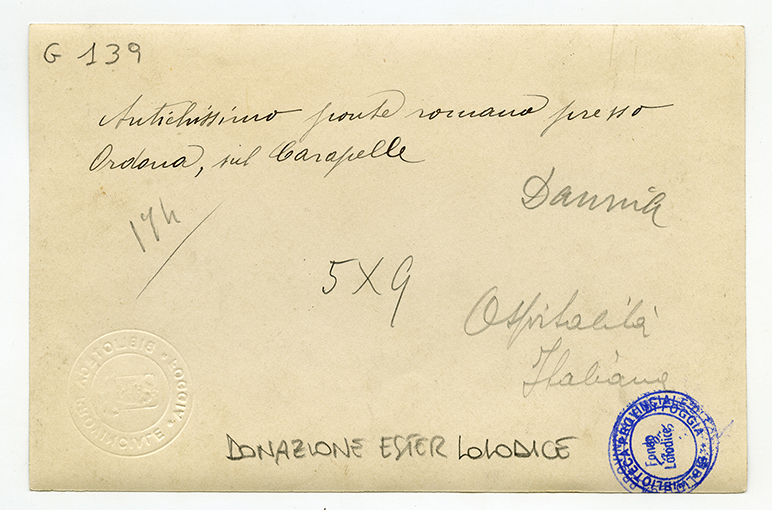 G 139
Antichissimo ponte romano presso
Ordona, sul Carapelle
Daunia
5 X 9
Ospitalità
Italiana
BIBLIOTECA PROVINCIALE FOGGIA
DONAZIONE ESTER LOIODICE
BIBLIOTECA PROVINCIALE DI FOGGIA
Fondo
Loiodice